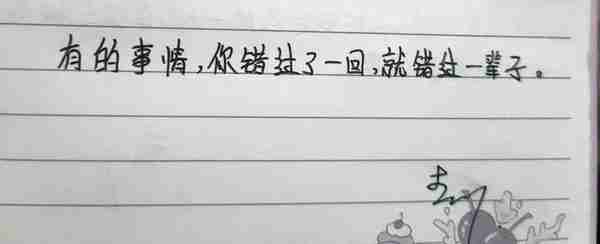 有的事情,你错过了一回,就错过一辈子。